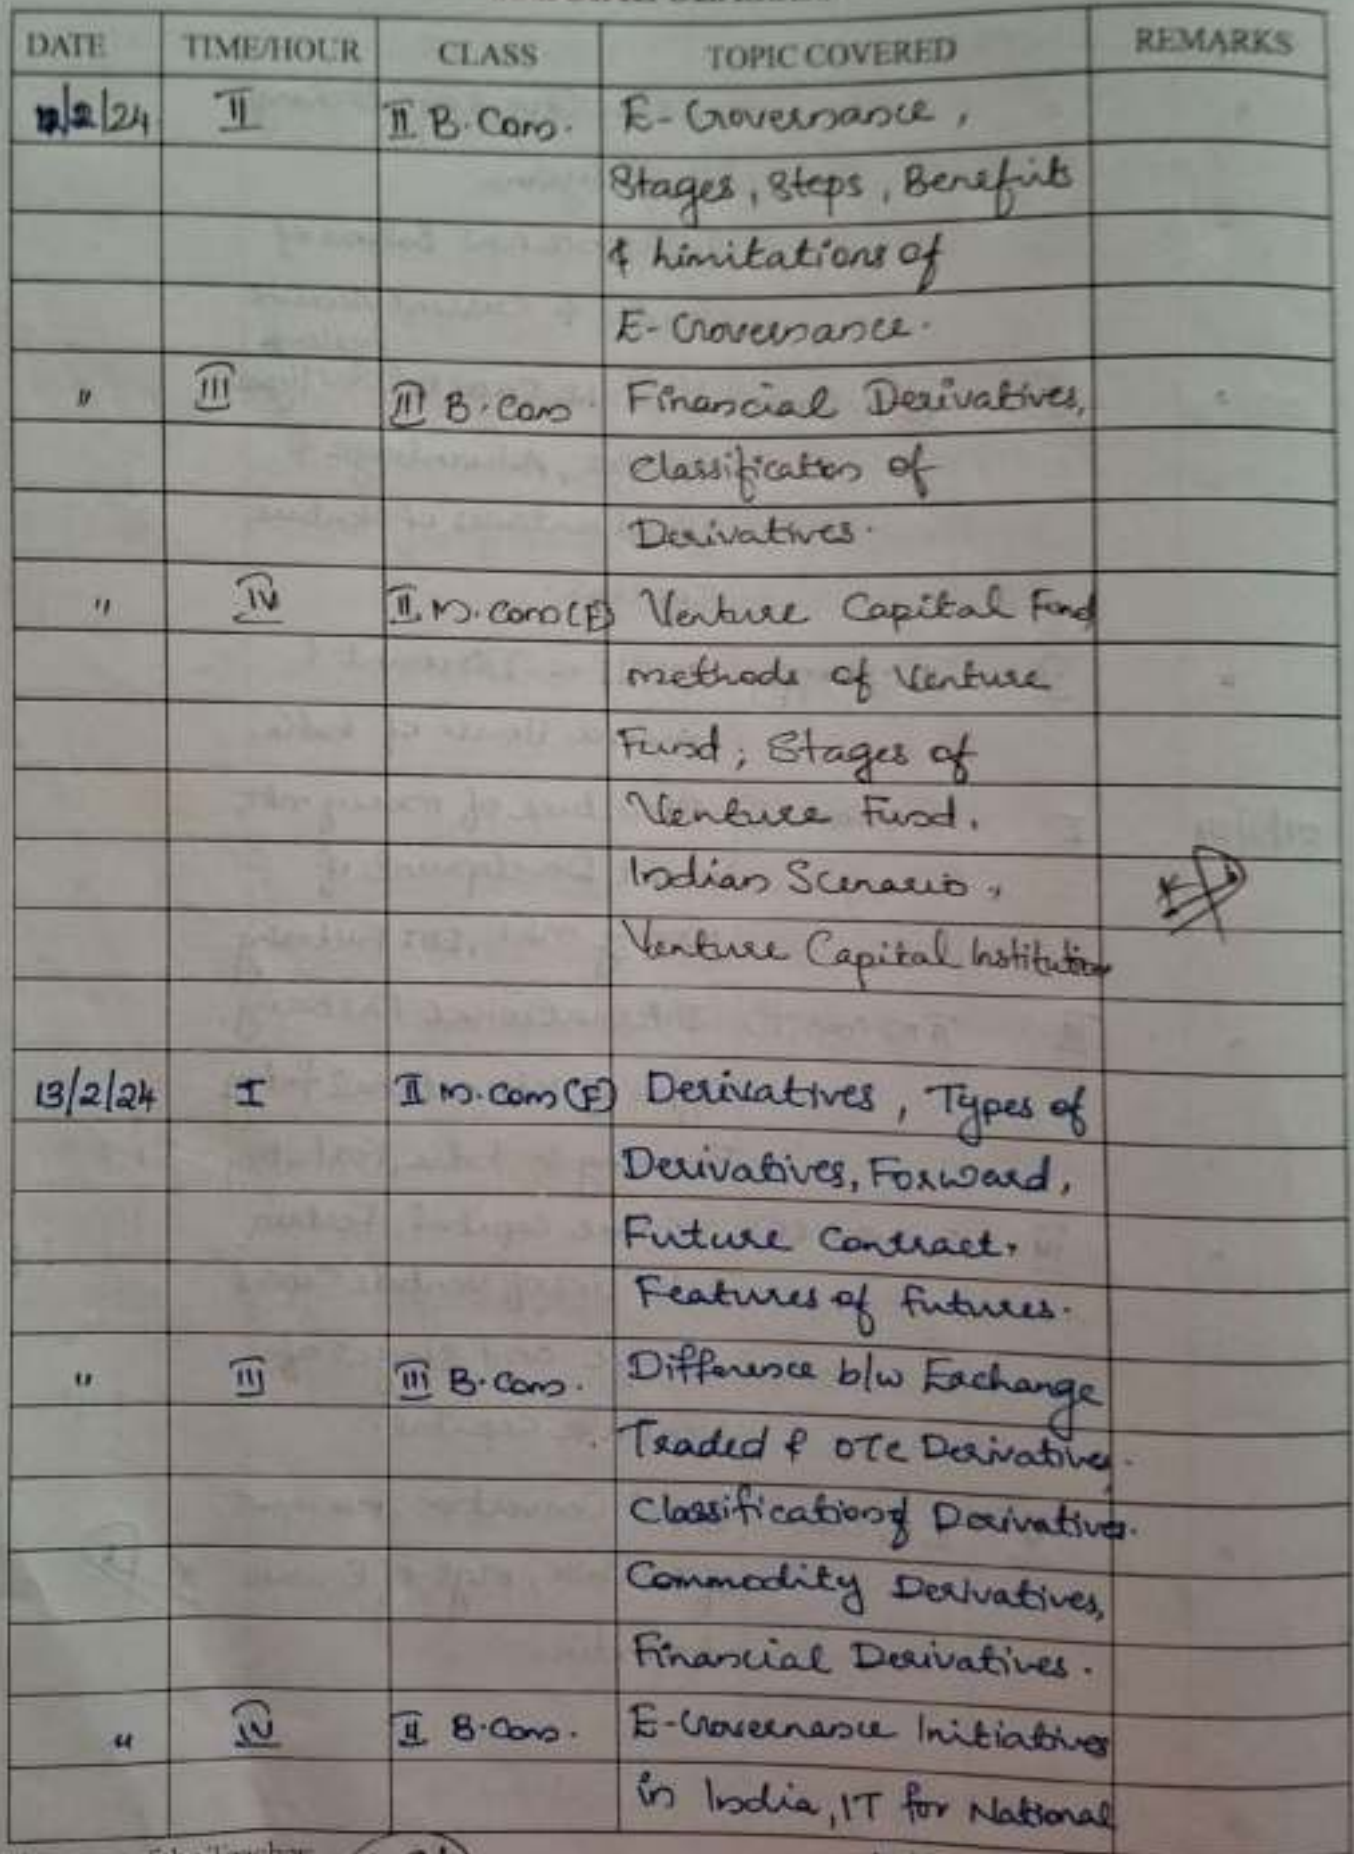 DATE TIME/HOUR CLASS TOPIC COVERED REMARKS
12/2/24 II II B.Com. E-Governance,
Stages, Steps, Benefits
& Limitations of
E-Governance.
" III III B.Com Financial Derivatives,
Classification of
Derivatives.
" IV II M.Com(F) Venture Capital Fund
methods of Venture
Fund; Stages of
Venture Fund.
Indian Scenario,
Venture Capital Institution
13/2/24 I II M.Com(F) Derivatives, Types of
Derivatives, Forward,
Future Contract,
Features of futures.
" III III B.Com. Difference b/w Exchange
Traded & OTC Derivatives.
Classification of Derivatives.
Commodity Derivatives,
Financial Derivatives.
" IV II B.Com. E-Governance Initiatives
in India, IT for National